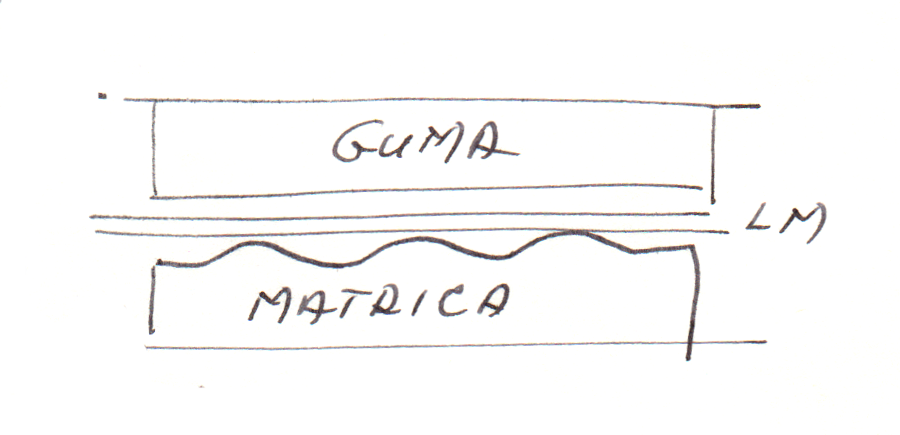 GUMA
LM
MATRICA